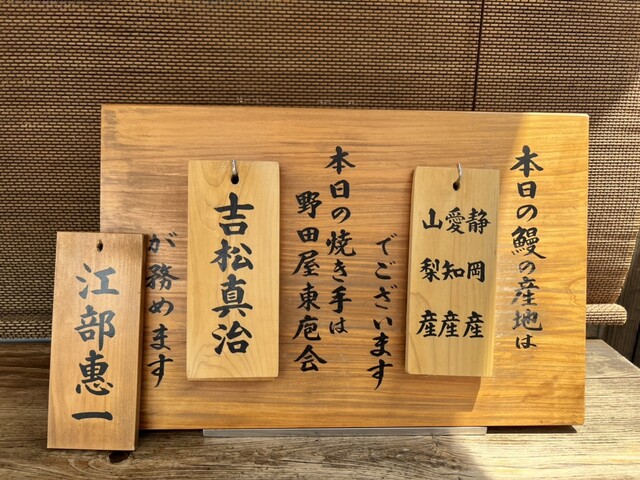 本日の鰻の産地は
静岡産
愛知産
山梨産
でございます
本日の焼き手は
野田屋東庖会
吉松真治
が務めます
江部恵一